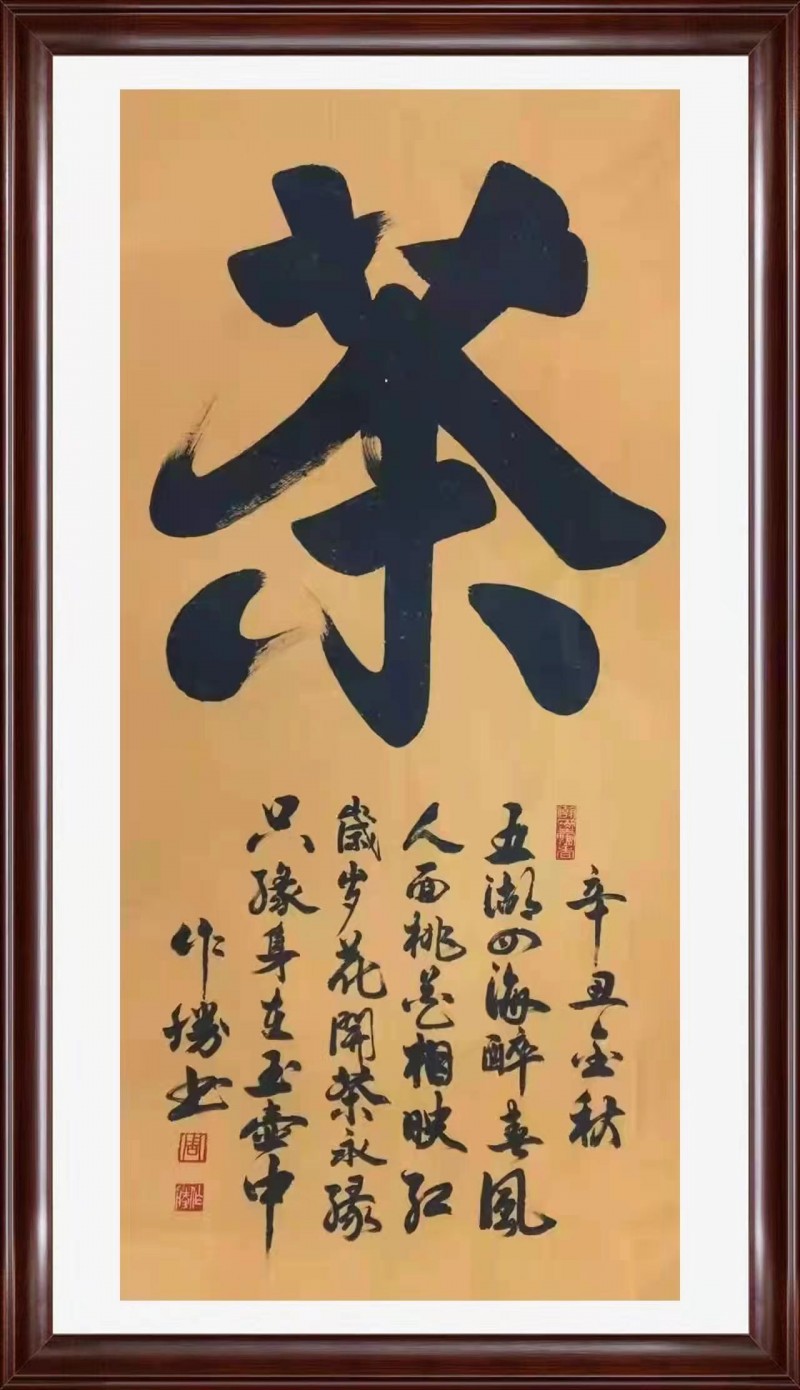 茶
辛丑金秋
五湖四海醉春風
人面桃花相映红
歲岁花開茶永緣
只緣身在玉壶中
作勝书
周